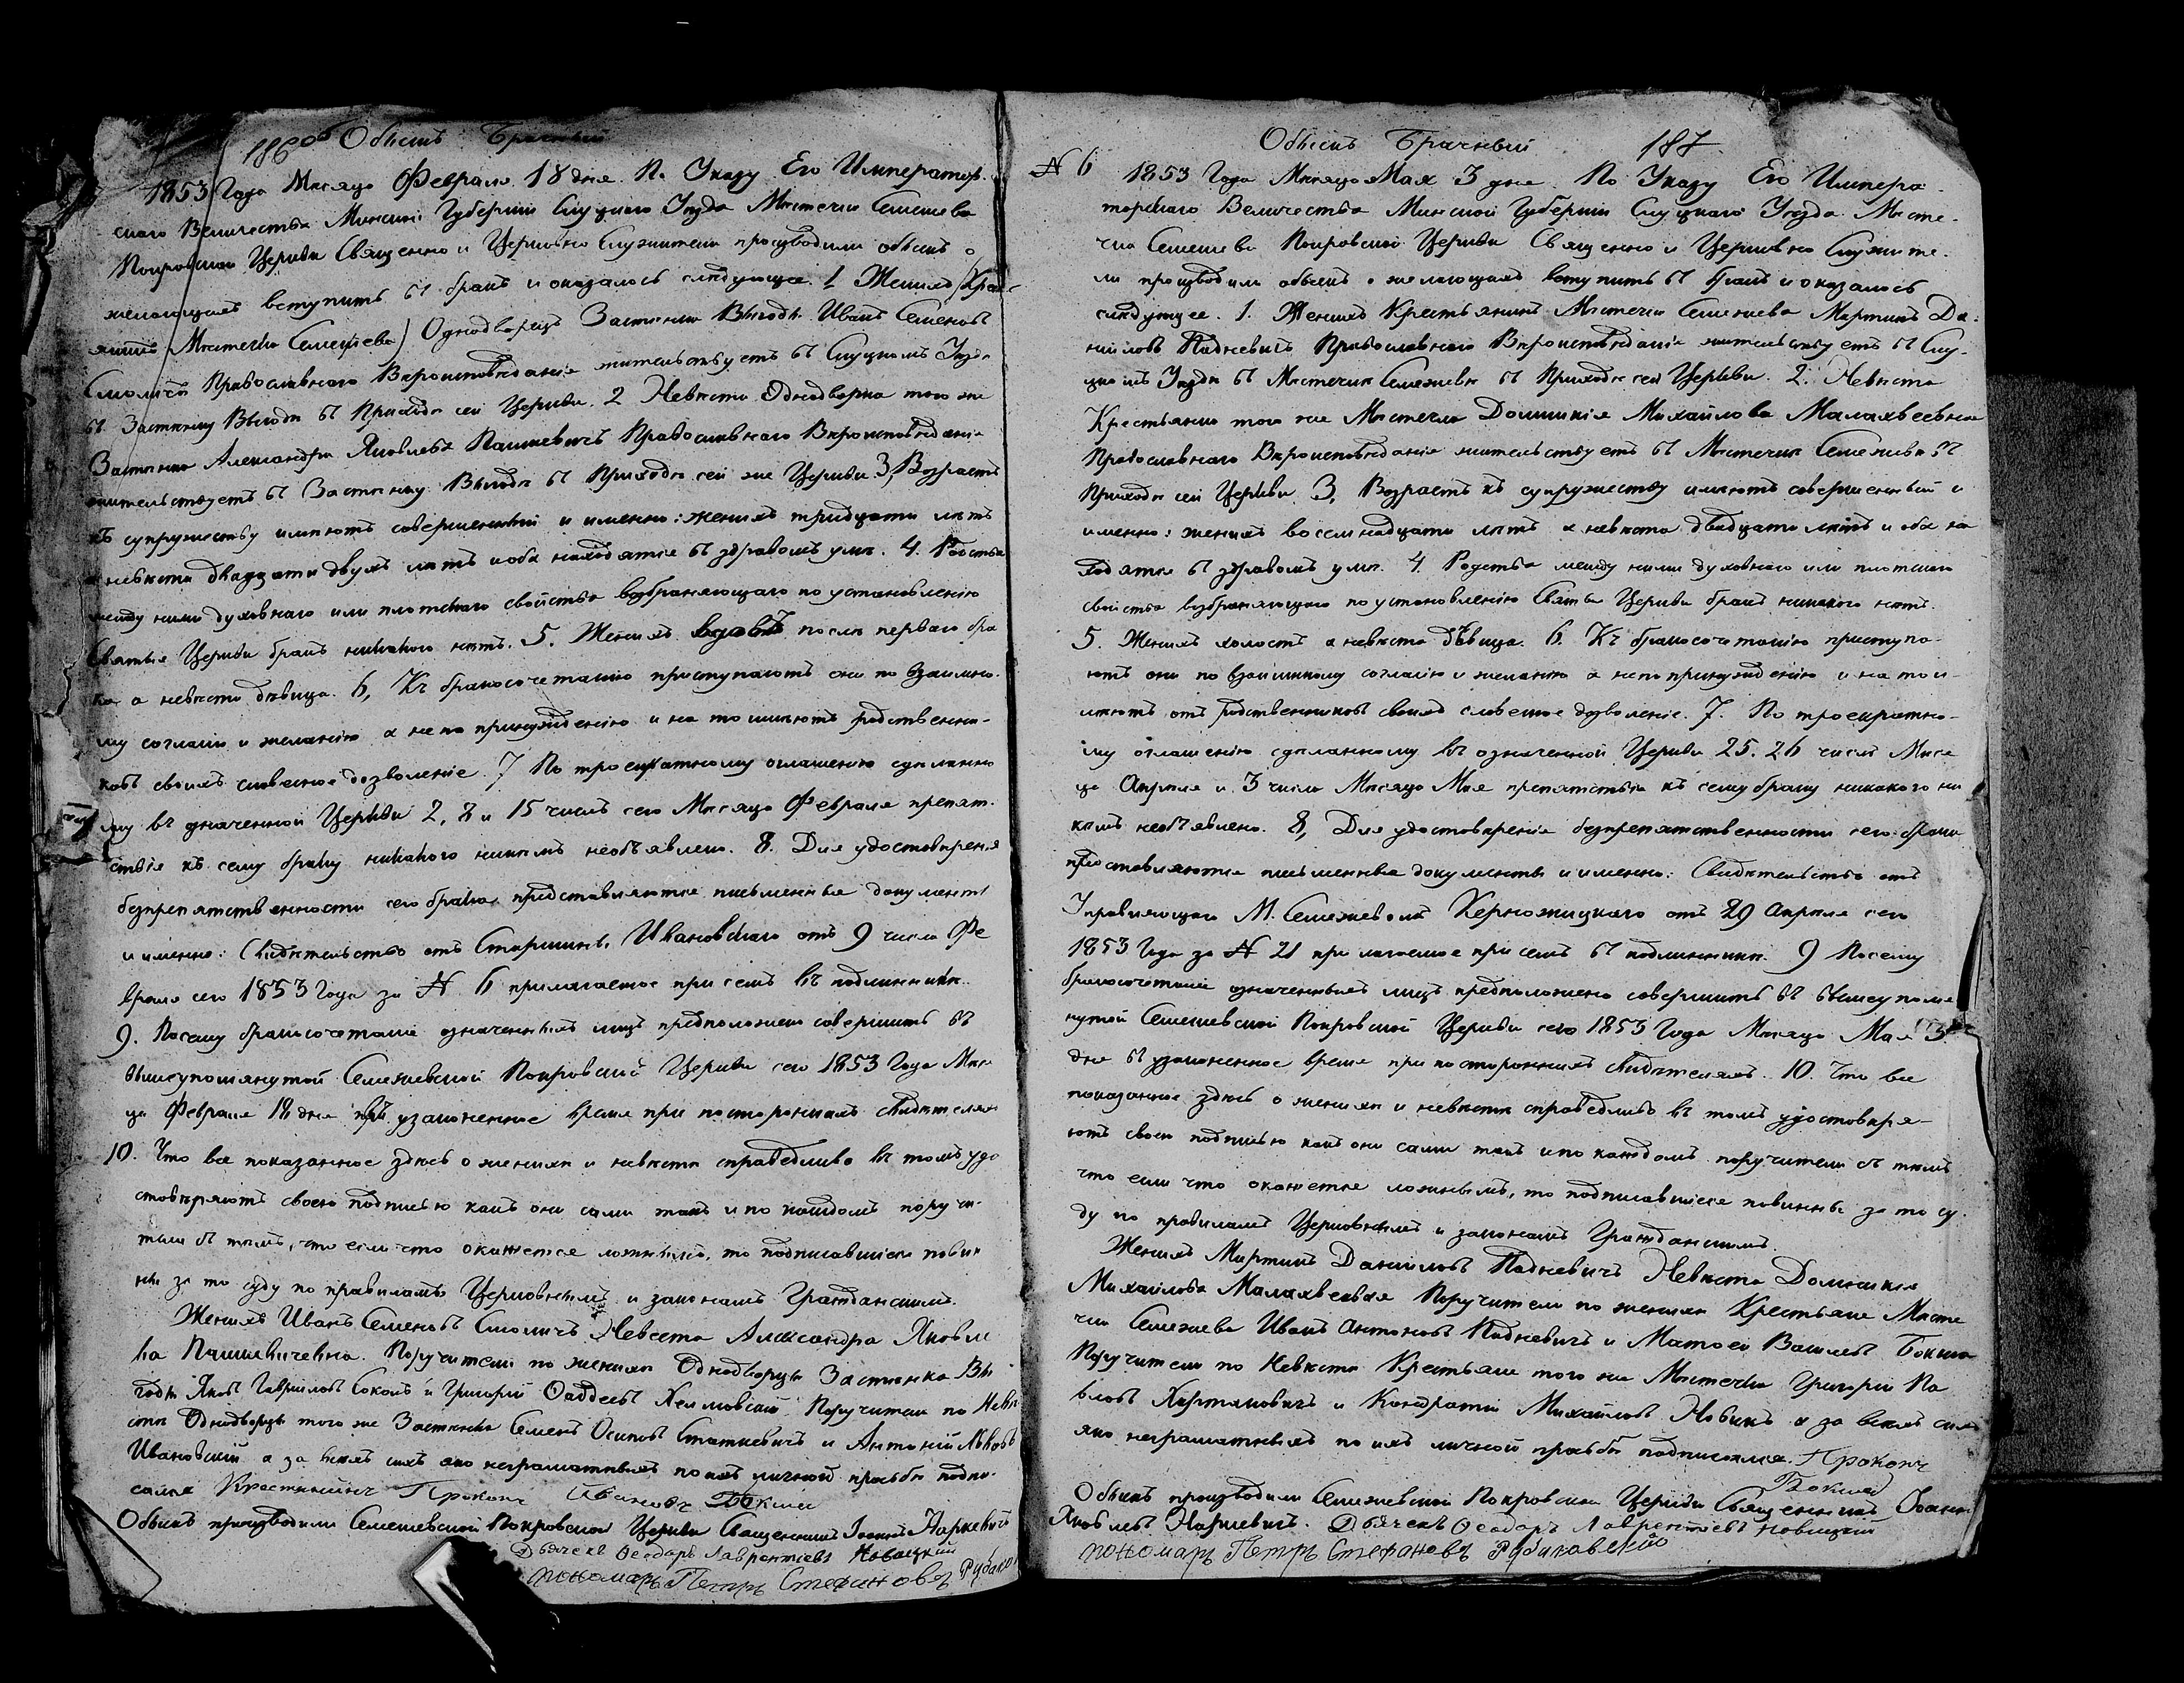 186об Обыскъ Брачный
1853 Года Мѣсяца Февраля 18 дня. По Указу Его Император-
скаго Величества Минской Губерніи Слуцкаго Уѣзда Мѣстечка Семежева
Покровской Церкви Священно и Церковно Служители производили обыскъ о
желающихъ вступить въ бракъ и оказалось слѣдующее. 1 Женихъ (Кресть
янинъ Мѣстечка Семежева) Однодворецъ Застѣнка Выгоды Иванъ Семеновъ
Смоличъ Православнаго Вѣроисповѣданія жительствуетъ въ Слуцкомъ Уѣздѣ
въ Застѣнку Выгоды въ Приходѣ сей Церкви. 2 Невѣста Однодворка того же
Застѣнка Александра Яковлева Пашкевичъ Православнаго Вѣроисповѣданія
жительствуетъ въ Застѣнку Выгоды въ Приходѣ сей же Церкви. 3, Возрастъ
къ супружеству имѣютъ совершенный и именно: женихъ тридцати лѣтъ
а невѣста двадцати двухъ лѣтъ и оба находятся въ здравомъ умѣ. 4. Родства
между ними духовнаго или плотскаго свойства возбраняющаго по установленію
Святыя Церкви бракъ никакого нѣтъ. 5. Женихъ вдовъ послѣ перваго бра
ка а невѣста дѣвица. 6, Къ бракосочетанію приступаютъ они по взаимно-
му согласію и желанію а не по принужденію и на то имѣютъ родственни-
ковъ своихъ словесное дозволеніе. 7 По троекратному оглашенію сдѣланно
му въ означенной Церкви 2, 8 и 15 числъ сего Мѣсяца Февраля препят-
ствія къ сему браку никакого никѣмъ необъявлено. 8. Для удостовѣренія
безпрепятственности сего брака представляются письменные документы
и именно: Свидѣтельство отъ Старшины Ивановскаго отъ 9 числа Фе
враля сего 1853 Года за № 6 прилагаемое при семъ въ подлинникѣ.
9. Посему бракосочетаніе означенныхъ лицъ предположено совершить въ
вышеупомянутой Семежевской Покровской Церкви сего 1853 Года Мѣся
ца Февраля 18 дня въ узаконенное время при постороннихъ свидѣтеляхъ
10. Что все показанное здѣсь о женихѣ и невѣстѣ справедливо въ томъ удо
стовѣряютъ своею подписью какъ они сами такъ и по каждомъ поручи-
тели съ тѣмъ, что если что окажется ложнымъ, то подписавшіеся повин
ны за то суду по правиламъ Церковнымъ и законамъ Гражданскимъ.
Женихъ Иванъ Семеновъ Смоличъ Невеста Александра Яковле
ва Пашкевичевна. Поручители по женихѣ Однодворцы Застѣнка Вы
годы Яковъ Гавриловъ Соколъ и Григорій Фаддеевъ Хелмовскій. Поручители по Невѣ
стѣ Однодворцы того же Застѣнка Семенъ Осиповъ Статкевичъ и Антоній Львовъ
Ивановскій а за всѣхъ ихъ яко неграматныхъ по ихъ личной прозьбѣ подпи-
сался Крестянинъ Прокопъ Ивановъ Бокша
Обыскъ производили Семежевской Покровской Церкви Священникъ Іоаннъ Наркевичъ
Дьячекъ Феодоръ Лаврентіевъ Новицкій
пономарь Петръ Стефановъ
Обыскъ Брачный 187
№ 6 1853 Года Мѣсяца Мая 3 дня. По Указу Его Импера-
торскаго Величества Минской Губерніи Слуцкаго Уѣзда Мѣсте-
чка Семежева Покровской Церкви Священно и Церковно Служите-
ли производили обыскъ о желающихъ вступить въ бракъ и оказалось
слѣдующее. 1. Женихъ Крестьянинъ Мѣстечка Семежева Мартинъ Да-
ниловъ Падневичъ Православнаго Вѣроисповѣданія жительствуетъ въ Слу-
цкомъ Уѣздѣ въ Мѣстечкѣ Семежевѣ въ Приходѣ сей Церкви. 2. Невѣста
Крестьянка того же Мѣстечка Доминикія Михайлова Малахвеевна
Православнаго Вѣроисповѣданія жительствуетъ въ Мѣстечкѣ Семежевѣ въ
Приходѣ сей Церкви. 3, Возрастъ къ супружеству имѣютъ совершенный и
именно: женихъ восемнадцати лѣтъ а невѣста двадцати лѣтъ и оба на
ходятся въ здравомъ умѣ. 4. Родства между ними духовнаго или плотскаго
свойства возбраняющаго по установленію Святыя Церкви бракъ никакого нѣтъ.
5. Женихъ холостъ а невѣста дѣвица. 6. Къ бракосочетанію приступа-
ютъ они по взаимному согласію и желанію а не по принужденію и на то и-
мѣютъ отъ родственниковъ своихъ словесное дозволеніе. 7. По троекратно-
му оглашенію сдѣланному въ означенной Церкви 25. 26 числъ Мѣся
ца Апрѣля и 3 числа Мѣсяца Мая препятствія къ сему браку никакого ни
кѣмъ необъявлено. 8, Для удостовѣренія безпрепятственности сего брака
представляются письменные документы и именно: Свидѣтельство отъ
Управляющаго М. Семежевомъ Керножицкаго отъ 29 Апрѣля сего
1853 Года за № 21 прилагаемое при семъ въ подлинникѣ. 9 Посему
бракосочетаніе означенныхъ лицъ предположено совершить въ вышеупомя
нутой Семежевской Покровской Церкви сего 1853 Года Мѣсяца Мая 3
дня въ узаконенное время при постороннихъ свидѣтеляхъ. 10. Что все
показанное здѣсь о женихѣ и невѣстѣ справедливо въ томъ удостовѣря-
ютъ своею подписью какъ они сами такъ и по каждомъ поручители съ тѣмъ
что если что окажется ложнымъ, то подписавшіеся повинны за то су-
ду по правиламъ Церковнымъ и законамъ Гражданскимъ.
Женихъ Мартинъ Даниловъ Падневичъ Невѣста Доминикія
Михайлова Малахвеевна Поручители по женихѣ Крестьяне Мѣсте
чка Семежева Иванъ Антоновъ Падневичъ и Матѳей Васильевъ Бокша
Поручители по Невѣстѣ Крестьяне того же Мѣстечка Григорій Па
вловъ Хартановичъ и Кондратій Михайловъ Новикъ а за всѣхъ сихъ
яко неграматныхъ по ихъ личной прозьбѣ подписался. Прокопъ
Бокша
Обыскъ производили Семежевской Покровской Церкви Священникъ Іоаннъ
Яковлевъ Наркевичъ. Дьячекъ Феодоръ Лаврентіевъ Новицкій
пономарь Петръ Стефановъ Рубановскій